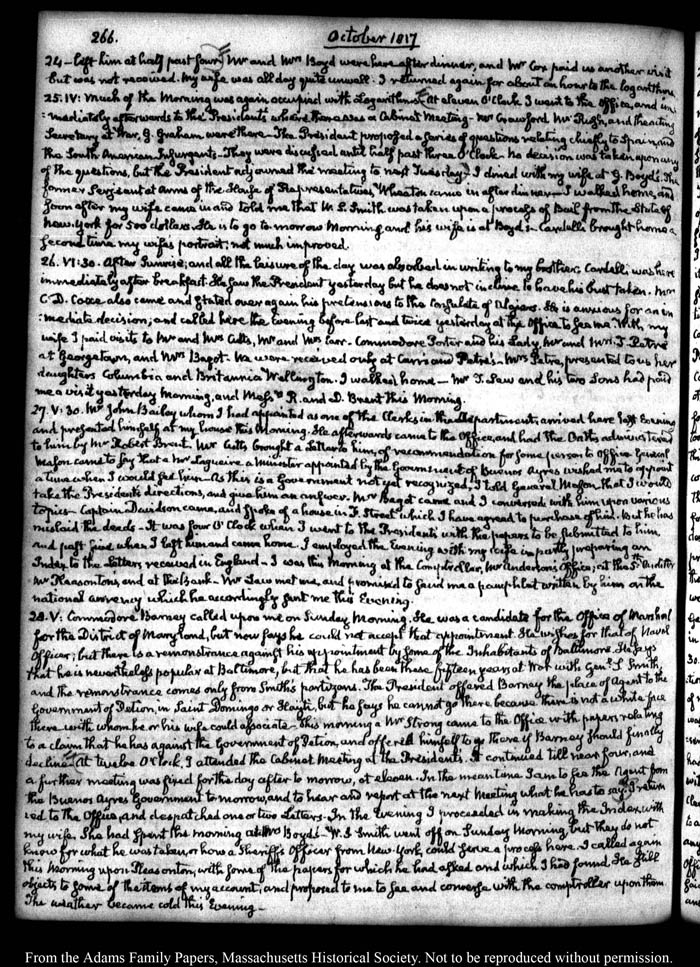 266. October 1817
24 — left him at half past four. Mr and Mrs Boyd were here after dinner, and Mr Cox paid us another visit
but was not received. My wife was all day quite unwell. I returned again for about an hour to the logarithms.
25. IV: Much of the Morning was again occupied with Logarithms. At eleven O'Clock I went to the Office, and im-
:mediately afterwards to the Presidents where there was a Cabinet Meeting. Mr Crawford Mr Rush, and the acting
Secretary at War, G. Graham were there — The President proposed a series of questions relating chiefly to Spain, and
the South American Insurgents — They were discussed until half past three O'Clock — No decision was taken upon any
of the questions, but the President adjourned the meeting to next Tuesday — I dined with my wife at G. Boyd's. The
former Serjeant at arms of the House of Representatives, Wheaton came in after dinner — I walked home, and
soon after my wife came in and told me that W. S. Smith was taken upon a process of Bail from the State of
New York for 500 dollars. He is to go to-morrow Morning and his wife is at Boyd's — Cardelli brought home a
second time my wife's portrait; not much improved.
26. VI:30. After Sunrise; and all the leisure of the day was absorbed in writing to my brother. Cardelli was here
immediately after breakfast. He saw the President yesterday but he does not incline to have his bust taken. Mr
C. D. Coxe also came and stated over again his pretensions to the Consulate of Algiers. He is anxious for an im-
:mediate decision, and called here the Evening before last and twice yesterday at the Office to see me. With my
wife I paid visits to Mr and Mrs Cutts, Mr and Mrs Carr — Commodore Porter and his Lady, Mr and Mrs J. Petre
at Georgetown, and Mrs Bagot. We were received only at Carr's and Petre's — Mrs Petre, presented to us her
daughters Columbia and Britannia Wellington. I walked home — Mr T. Law and his two Sons had paid
me a visit yesterday Morning, and Messrs R. and D. Brent this Morning.
27. V:30. Mr John Bailey whom I had appointed as one of the Clerks in the Department, arrived here last Evening
and presented himself at my house this Morning. He afterwards came to the Office, and had the Oaths administered
to him by Mr Robert Brent. Mr Cutts brought a Letter to him, of recommendation for some person to Office. General
Mason came to say that a Mr Aguirre a Minister appointed by the Government of Buenos Ayres wished me to appoint
a time when I would see him — As this is a Government not yet recognized, I told General Mason that I would
take the President's directions, and give him an answer. Mr Bagot came and I conversed with him upon various
topics — Captain Davidson came, and spoke of a house in F. Street which I have agreed to purchase of him. But he has
mislaid the deeds — It was four O'Clock when I went to the Presidents with the papers to be submitted to him
and past five when I left him and came home. I employed the Evening with my wife in partly preparing an
Index to the Letters received in England — I was this Morning at the Comptroller, Mr Anderson's Office; at the 5th Auditor
Mr Pleasonton's, and at the Bank — Mr Law met me, and promised to send me a pamphlet written by him on the
national currency which he accordingly sent me this Evening.
28. V: Commodore Barney called upon me on Sunday Morning. He was a candidate for the Office of Marshal
for the District of Maryland, but now says he could not accept that appointment. He wishes for that of Naval
Officer; but there is a remonstrance against his appointment by some of the Inhabitants of Baltimore. He says
that he is nevertheless popular at Baltimore, but that he has been these fifteen years at War with Genl. S. Smith,
and the remonstrance comes only from Smith's partizans. The President offered Barney the place of Agent to the
Government of Petion, in Saint Domingo or Hayti, but he says he cannot go there because there is not a white face
there with whom he or his wife could associate — This morning a Mr Strong came to the Office with papers relating
to a claim that he has against the Government of Petion, and offered himself to go there if Barney should finally
decline. At twelve O'Clock, I attended the Cabinet Meeting at the Presidents. It continued till near four, and
a further meeting was fixed for the day after to morrow, at eleven. In the meantime I am to see the Agent from
the Buenos Ayres Government to morrow, and to hear and report at the next Meeting what he has to say. I return-
ed to the Office, and despatched one or two Letters. In the Evening I proceeded in making the Index, with
my wife. She had spent the morning at Mrs Boyd's — W. S. Smith went off on Sunday Morning, but they do not
know for what he was taken, or how a Sheriff's Officer from New York, could serve a process here. I called again
this Morning upon Pleasonton, with some of the papers for which he had asked and which I had found. He still
objects to some of the items of my account, and proposed to me to see and converse with the comptroller upon them.
The weather became cold this Evening —
From the Adams Family Papers, Massachusetts Historical Society. Not to be reproduced without permission.